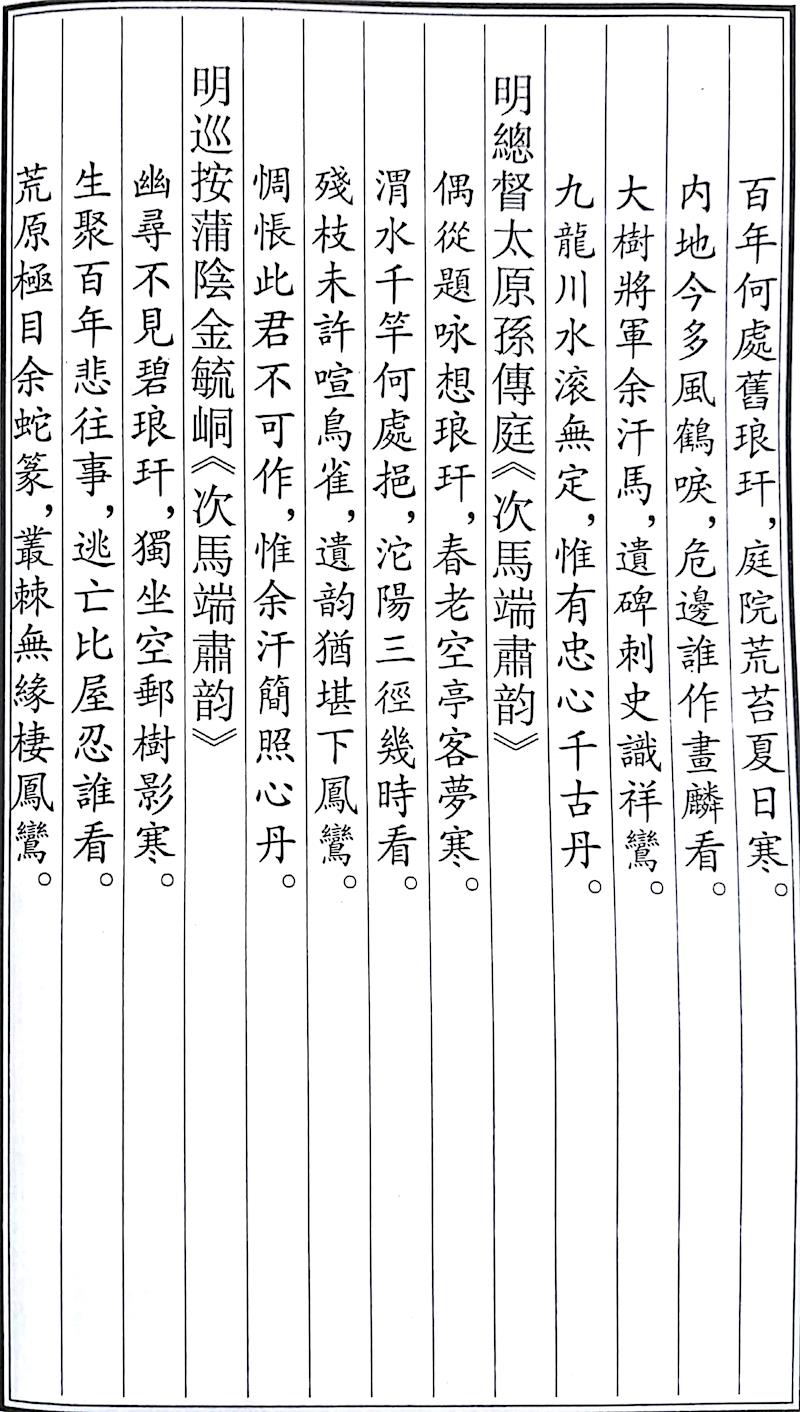 百年何處舊琅玕，庭院荒苔夏日寒。
内地今多風鶴唳，危邊誰作畫麟看。
大樹將軍余汗馬，遺碑刺史識祥鸞。
九龍川水滚無定，惟有忠心千古丹。
明總督太原孫傳庭《次馬端肅韵》
偶從題咏想琅玕，春老空亭客夢寒。
渭水千竿何處挹，沱陽三徑幾時看。
殘枝未許喧鳥雀，遺韵猶堪下鳳鸞。
惆悵此君不可作，惟余汗簡照心丹。
明巡按蒲陰金毓峒《次馬端肅韵》
幽尋不見碧琅玕，獨坐空郵樹影寒。
生聚百年悲往事，逃亡比屋忍誰看。
荒原極目余蛇篆，叢棘無緣棲鳳鸞。